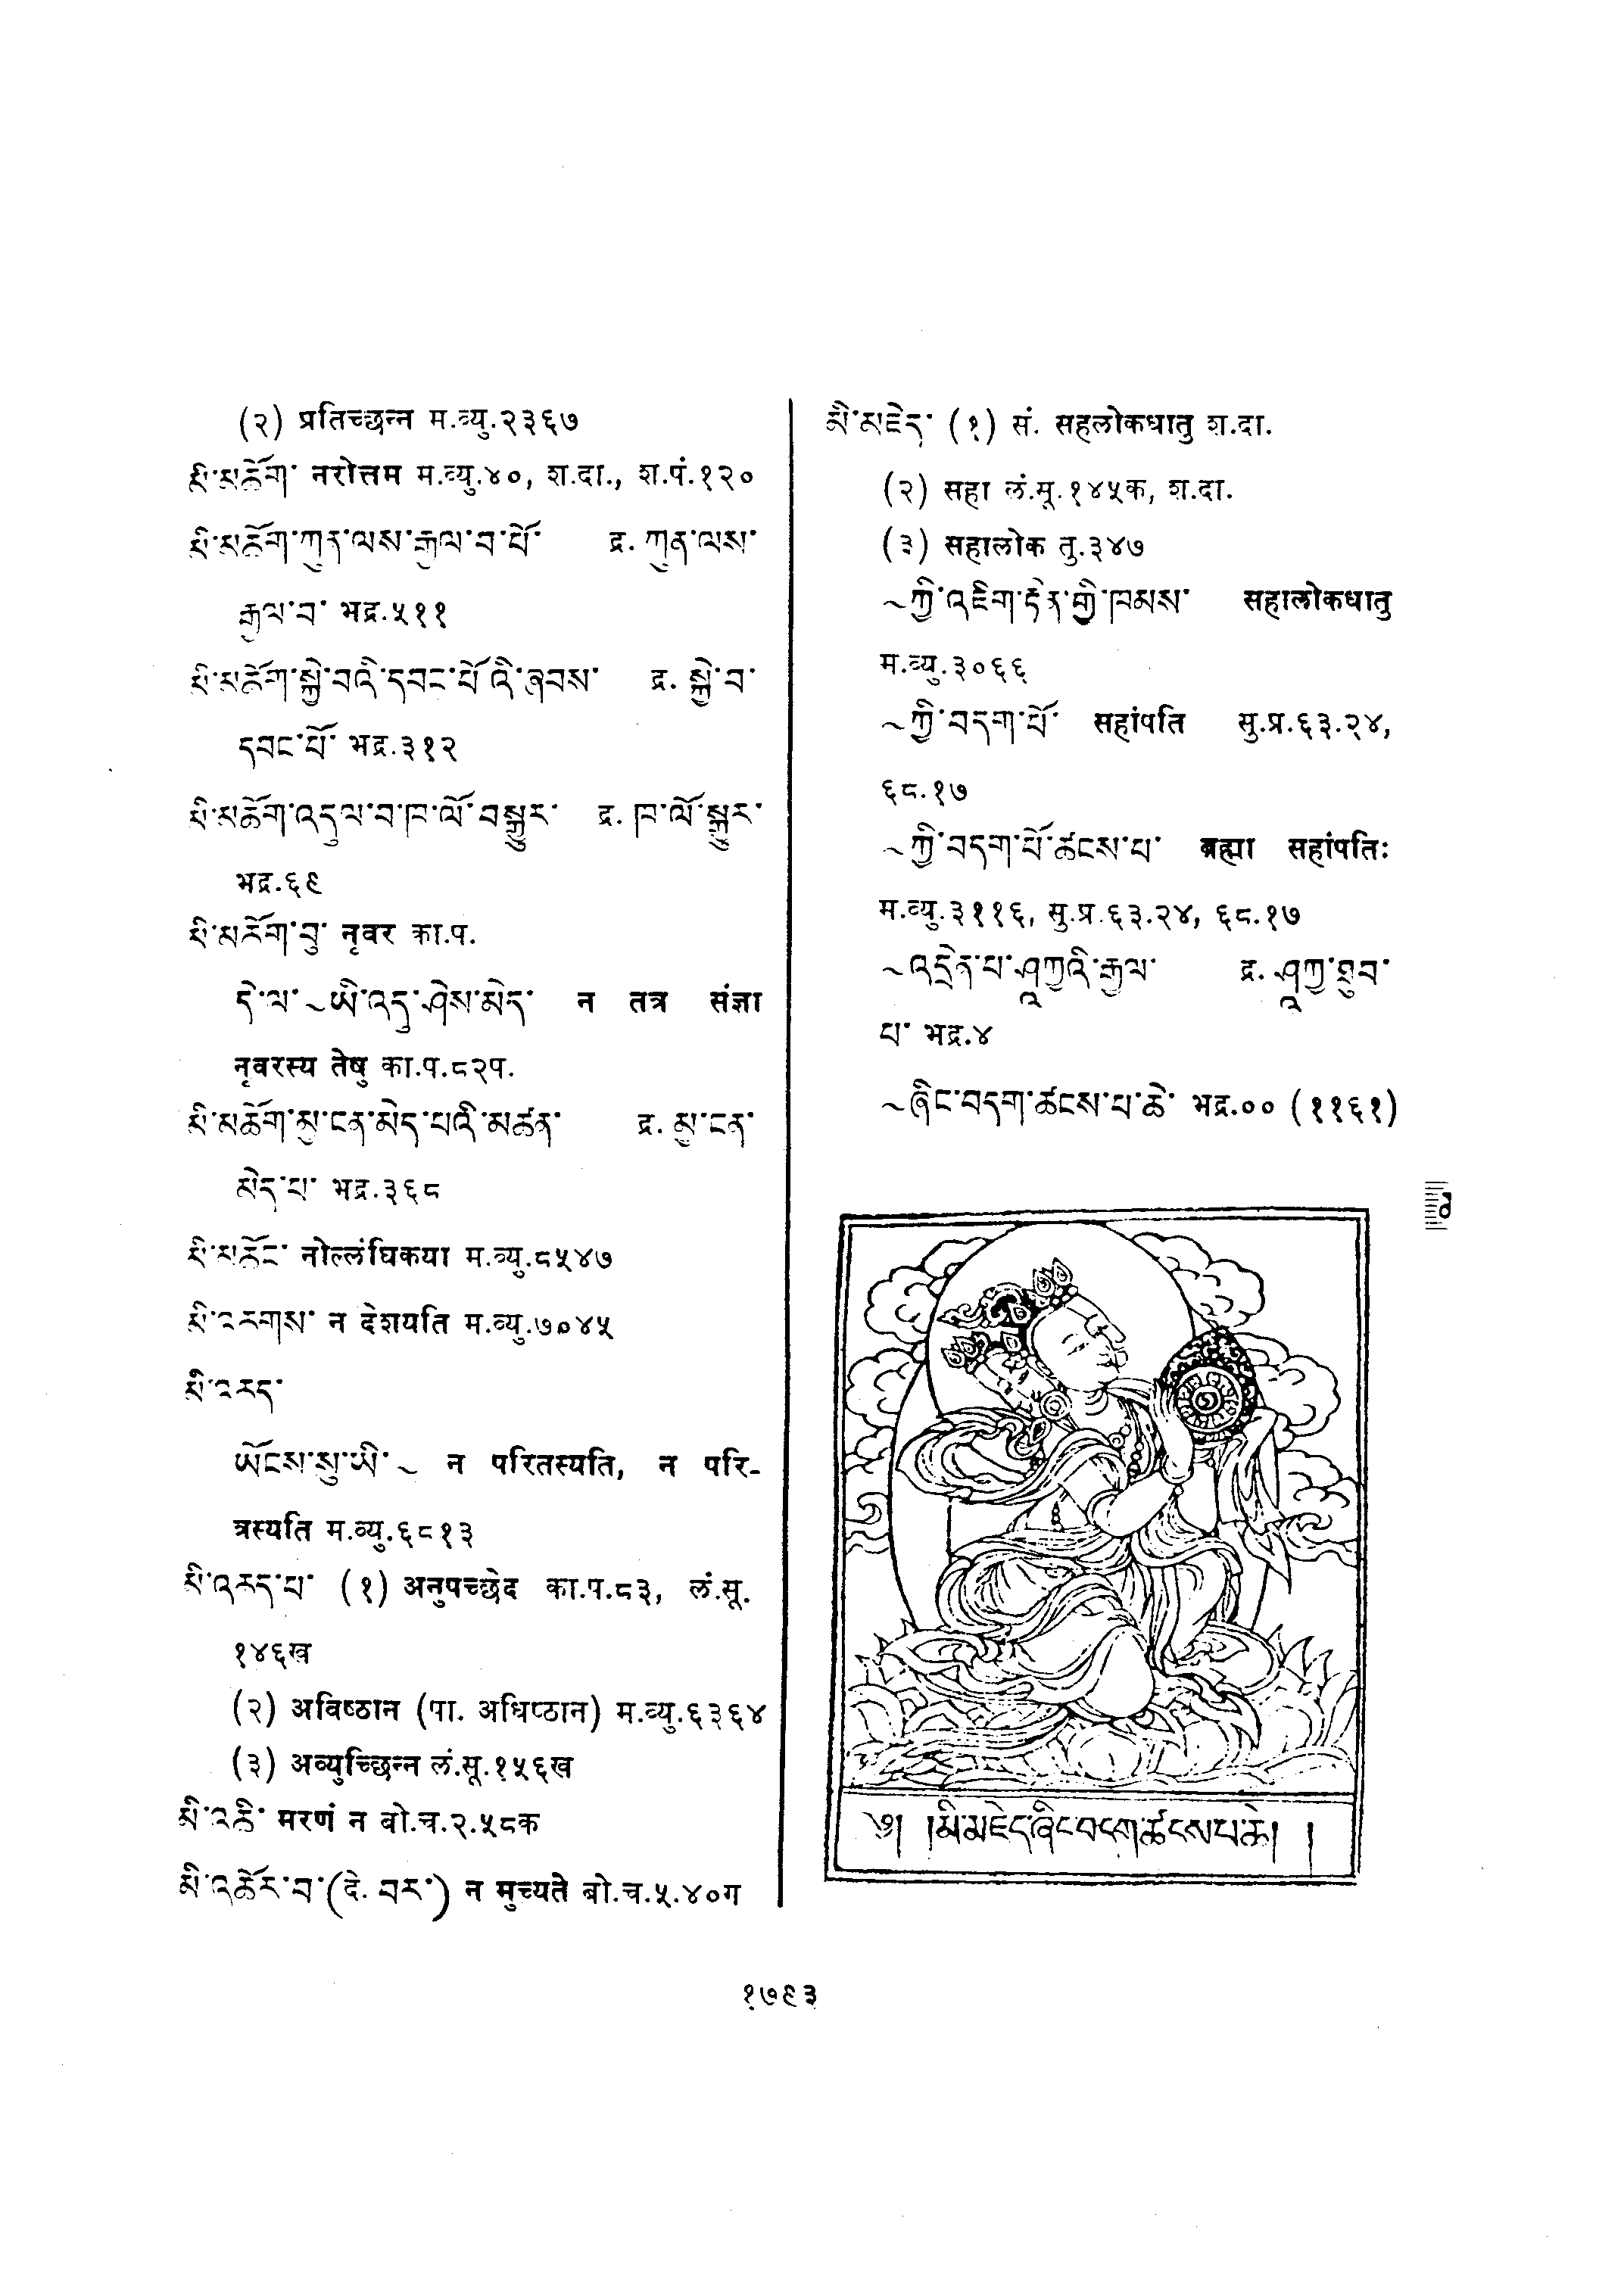 (२) प्रतिच्छन्न म.व्यु.२३६७
མི་མཆོག་ नरोत्तम म.व्यु.४०, श.दा., श.पं.१२०
མི་མཆོག་ཀུན་ལས་རྒྱལ་བ་པོ་ द्र. ཀུན་ལས་
རྒྱལ་བ་ भद्र.५११
མི་མཆོག་སྐྱེ་བའི་དབང་པོ་འི་ཞབས་ द्र. སྐྱེ་བ་
དབང་པོ་ भद्र.३१२
མི་མཆོག་འདུལ་བ་ཁ་ལོ་བསྒྱུར་ द्र. ཁ་ལོ་སྒྱུར་
भद्र.६९
མི་མཆོག་བུ་ नृवर का.प.
དེ་ལ་ ~ ཡི་འདུ་ཤེས་མེད་ न तत्र संज्ञा
नृवरस्य तेषु का.प.८२प.
མི་མཆོག་མྱ་ངན་མེད་པའི་མཚན་ द्र. མྱ་ངན་
མེད་པ་ भद्र.३६८
མི་མཆོང་ नोल्लंघिकया म.व्यु.८५४७
མི་འཆགས་ न देशयति म.व्यु.७०४५
མི་འཆད་
ཡོངས་སུ་ཡི་ ~ न परितस्यति, न परि-
त्रस्यति म.व्यु.६८१३
མི་འཆད་པ་ (१) अनुपच्छेद का.प.८३, लं.सू.
१४६ख
(२) अविष्ठान (पा. अधिष्ठान) म.व्यु.६३६४
(३) अव्युच्छिन्न लं.सू.१५६ख
མི་འཆི་ मरणं न बो.च.२.५८क
མི་འཆོར་བ་ (दे. བར་) न मुच्यते बो.च.५.४०ग
མི་མཇེད་ (१) सं. सहलोकधातु श.दा.
(२) सहा लं.सू.१४५क, श.दा.
(३) सहालोक तु.३४७
~ ཀྱི་འཇིག་རྟེན་གྱི་ཁམས་ सहालोकधातु
म.व्यु.३०६६
~ ཀྱི་བདག་པོ་ सहांपति सु.प्र.६३.२४,
६८.१७
~ ཀྱི་བདག་པོ་ཚངས་པ་ ब्रह्मा सहांपतिः
म.व्यु.३११६, सु.प्र.६३.२४, ६८.१७
~ འདྲེན་པ་ཤཱཀྱའི་རྒྱལ་ द्र. ཤཱཀྱ་ཐུབ་
པ་ भद्र.४
~ ཞིང་བདག་ཚངས་པ་ཆེ་ भद्र.०० (११६१)
༄། །མི་མཇེད་ཞིང་བདག་ཚངས་པ་ཆེ། །
१७९३